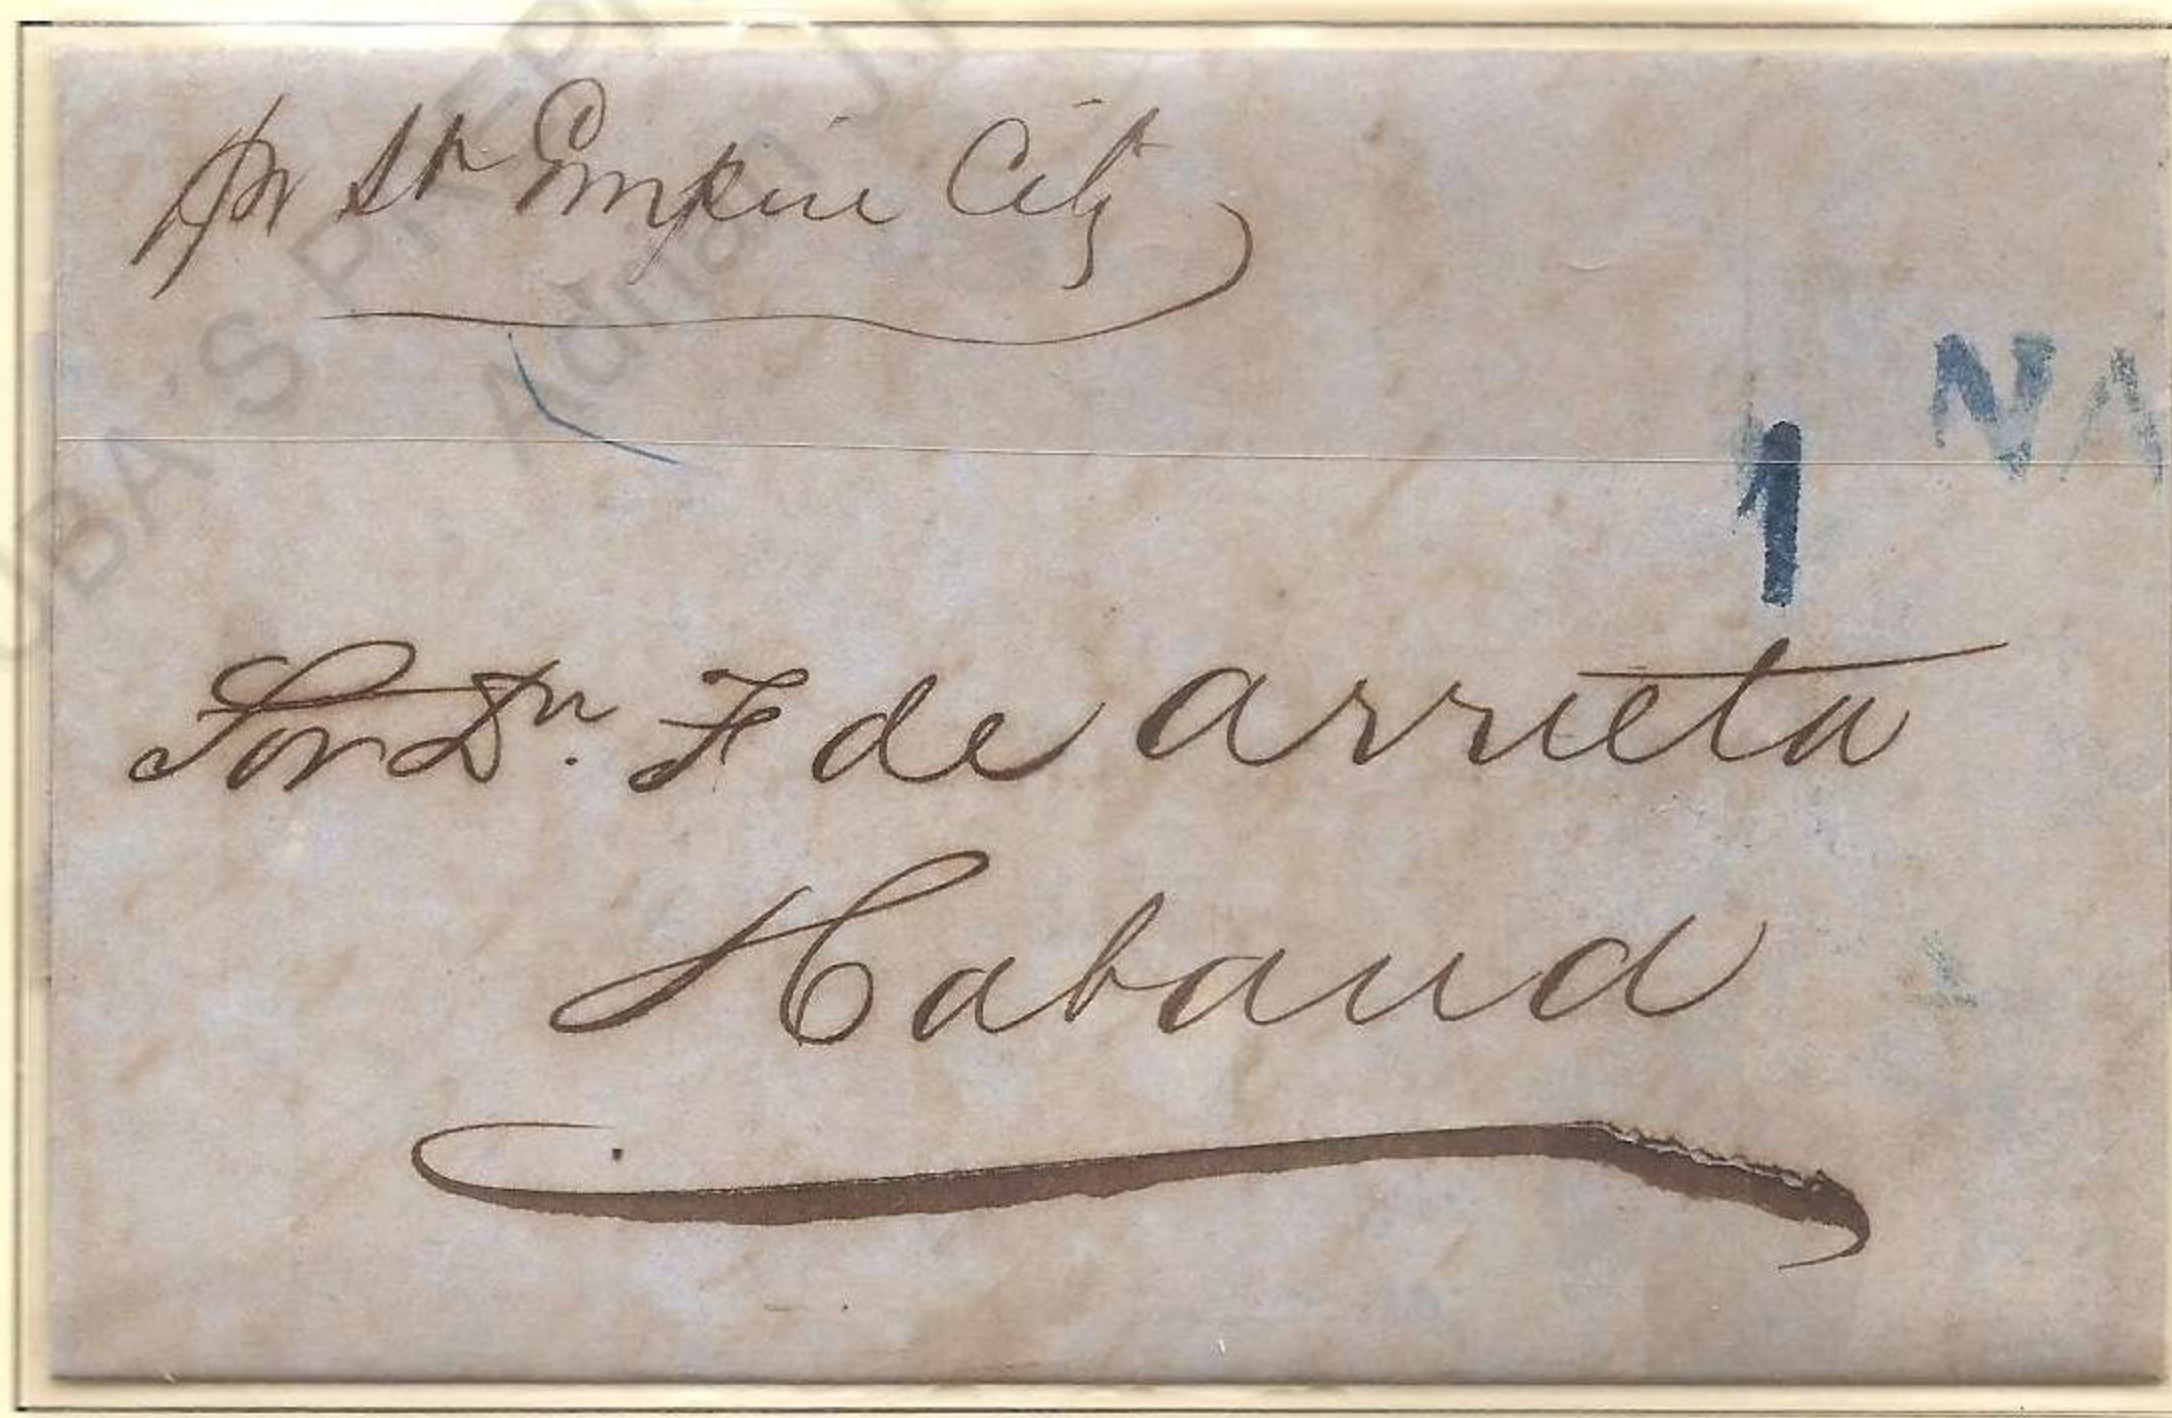 pr Str Empire City
NA
1
Sor Dn. F de Arrieta
Habana